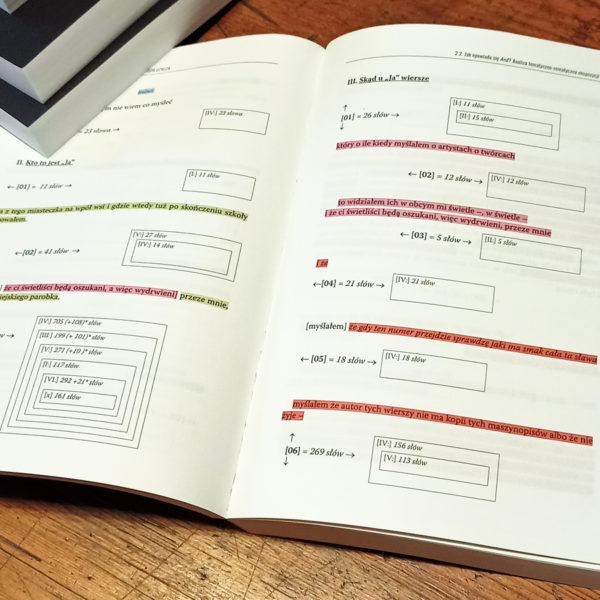 nowo
m nie wiem co myśleć
= 23 słowa →
[IV:] 23 słowa
II. Kto to jest „Ja”
← [01] = 11 słów →
[I:] 11 słów
a z tego miasteczka na wpół wsi i gdzie wtedy tuż po skończeniu szkoły
owałem.
←[02] = 41 słów →
[V:] 27 słów
[IV:] 14 słów
że ci świetliści będą oszukani, a więc wydrwieni] przeze mnie,
iejskiego parobka.
[IV:] 705 (+108)* słów
[III:] 199 (+ 101)* słów
[V:] 271 (+10 )* słów
[I:] 117 słów
[VI:] 292 +21* słów
[x] 161 słów
2.2. Jak opowiada się And? Analiza tematyczno-rematycznej ekspozycji
III. Skąd u „Ja” wiersze
↑
[01] = 26 słów →
↓
[I:] 11 słów
[II:] 15 słów
który o ile kiedy myślałem o artystach o twórcach
← [02] = 12 słów →
[IV:] 12 słów
to widziałem ich w obcym mi świetle –, w świetle –
i że ci świetliści będą oszukani, więc wydrwieni, przeze mnie
← [03] = 5 słów →
[II:] 5 słów
I że
←[04] = 21 słów →
[IV:] 21 słów
[myślałem] że gdy ten numer przejdzie sprawdzę jaki ma smak cała ta sława
← [05] = 18 słów →
[IV:] 18 słów
myślałem że autor tych wierszy nie ma kopii tych maszynopisów albo że nie
żyje –
↑
[06] = 269 słów →
↓
[IV:] 156 słów
[V:] 113 słów